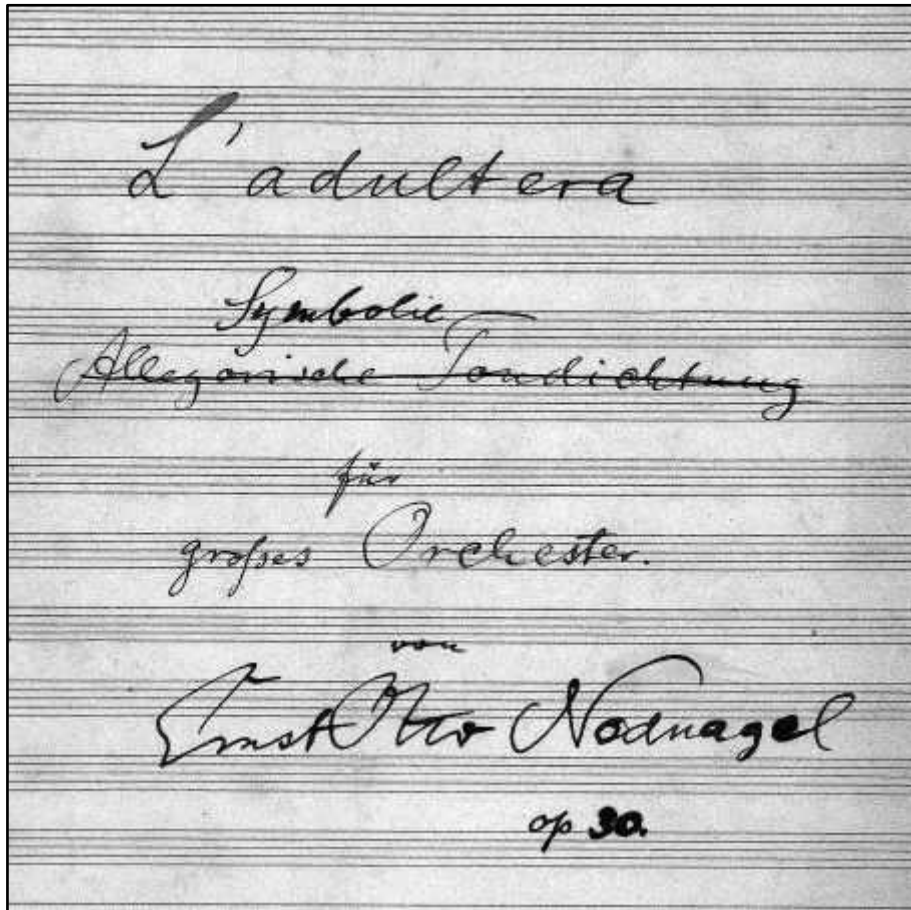 L'adultera
Symbolie
Allegorische Tondichtung
für
großes Orchester.
von
Ernst Otto Nodnagel
op 30.